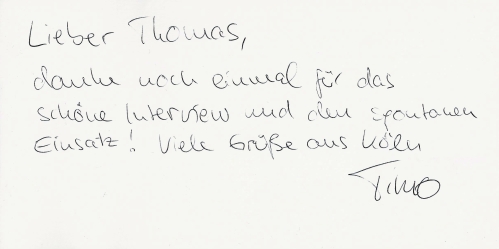 Lieber Thomas,
danke noch einmal für das
schöne Interview und den spontanen
Einsatz! Viele Grüße aus Köln
Timo